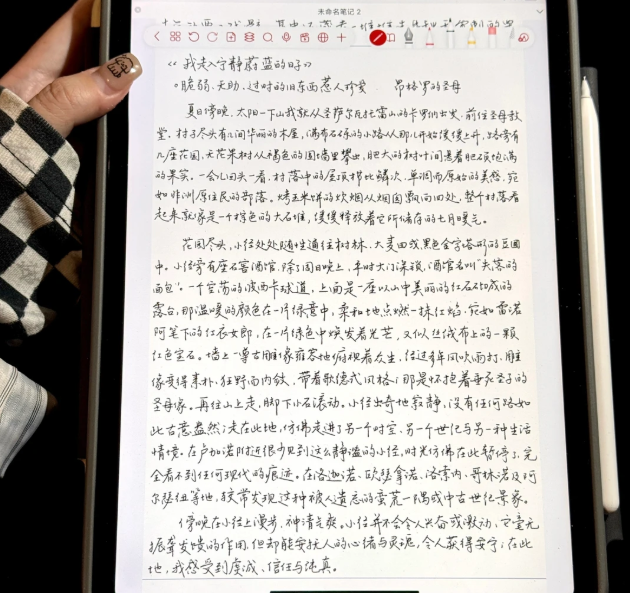 未命名笔记 2
《我走入宁静蔚蓝的日子》
。脆弱、无助、过时的旧东西惹人珍爱 昂格罗的圣母
夏日傍晚,太阳一下山我就从圣萨尔瓦托雷山的卡罗纳出发,前往圣母教
堂。村子尽头有几间华丽的木屋,满布石砾的小路从那儿开始缓缓上升,路旁有
几座花园,无花果树从褐色的围墙里攀出,肥大的树叶间悬着肥硕饱满
的果实。一会儿回头一看,村落中的屋顶栉比鳞次,单调而原始的美感,宛
如非洲原住民的部落。烤玉米饼的炊烟从烟囱飘向四处,整个村落看
起来就像是一个棕色的大石堆,缓缓释放着它所储存的七月暖气。
花园尽头,小径处处随性通往树林、大麦田或黑色金字塔形的豆圃
中。小径旁有座石窖酒馆,除了周日晚上,平时大门深锁,酒馆名叫“失落的
面包”。一个空荡的波西卡球道,上面是一座以山中美丽的红石砌成的
露台,那温暖的颜色在一片绿意中,柔和地点燃一抹红焰,宛如雷诺
阿笔下的红衣女郎,在一片绿色中焕发着光芒,又似丝绒布上的一颗
红色宝石。墙上一尊古雕像雍容地俯视着众生,经过多年风吹雨打,雕
像变得素朴、狂野而内敛,带着歌德式风格;那是怀抱着垂死圣子的
圣母像。再往山上走,脚下小石滚动。小径出奇地寂静,没有任何路如
此古意盎然;走在此地,仿佛走进了另一个时空、另一个世纪与另一种生活
情境。在卢加诺附近很少见到这么静谧的小径,时光仿佛在此暂停了,完
全看不到任何现代的痕迹。在洛迦诺、欧瑟拿诺、洛索内、哥林诺及阿
尔瑟纽等地,较常发现这种被人遗忘的蛮荒一隅或中古世纪景象。
傍晚在小径上漫步,神清气爽。小径并不会令人兴奋或激动,它毫无
振聋发聩的作用,但却能安抚人的心绪与灵魂,令人获得安宁;在此
地,我感受到虔诚、信任与纯真。